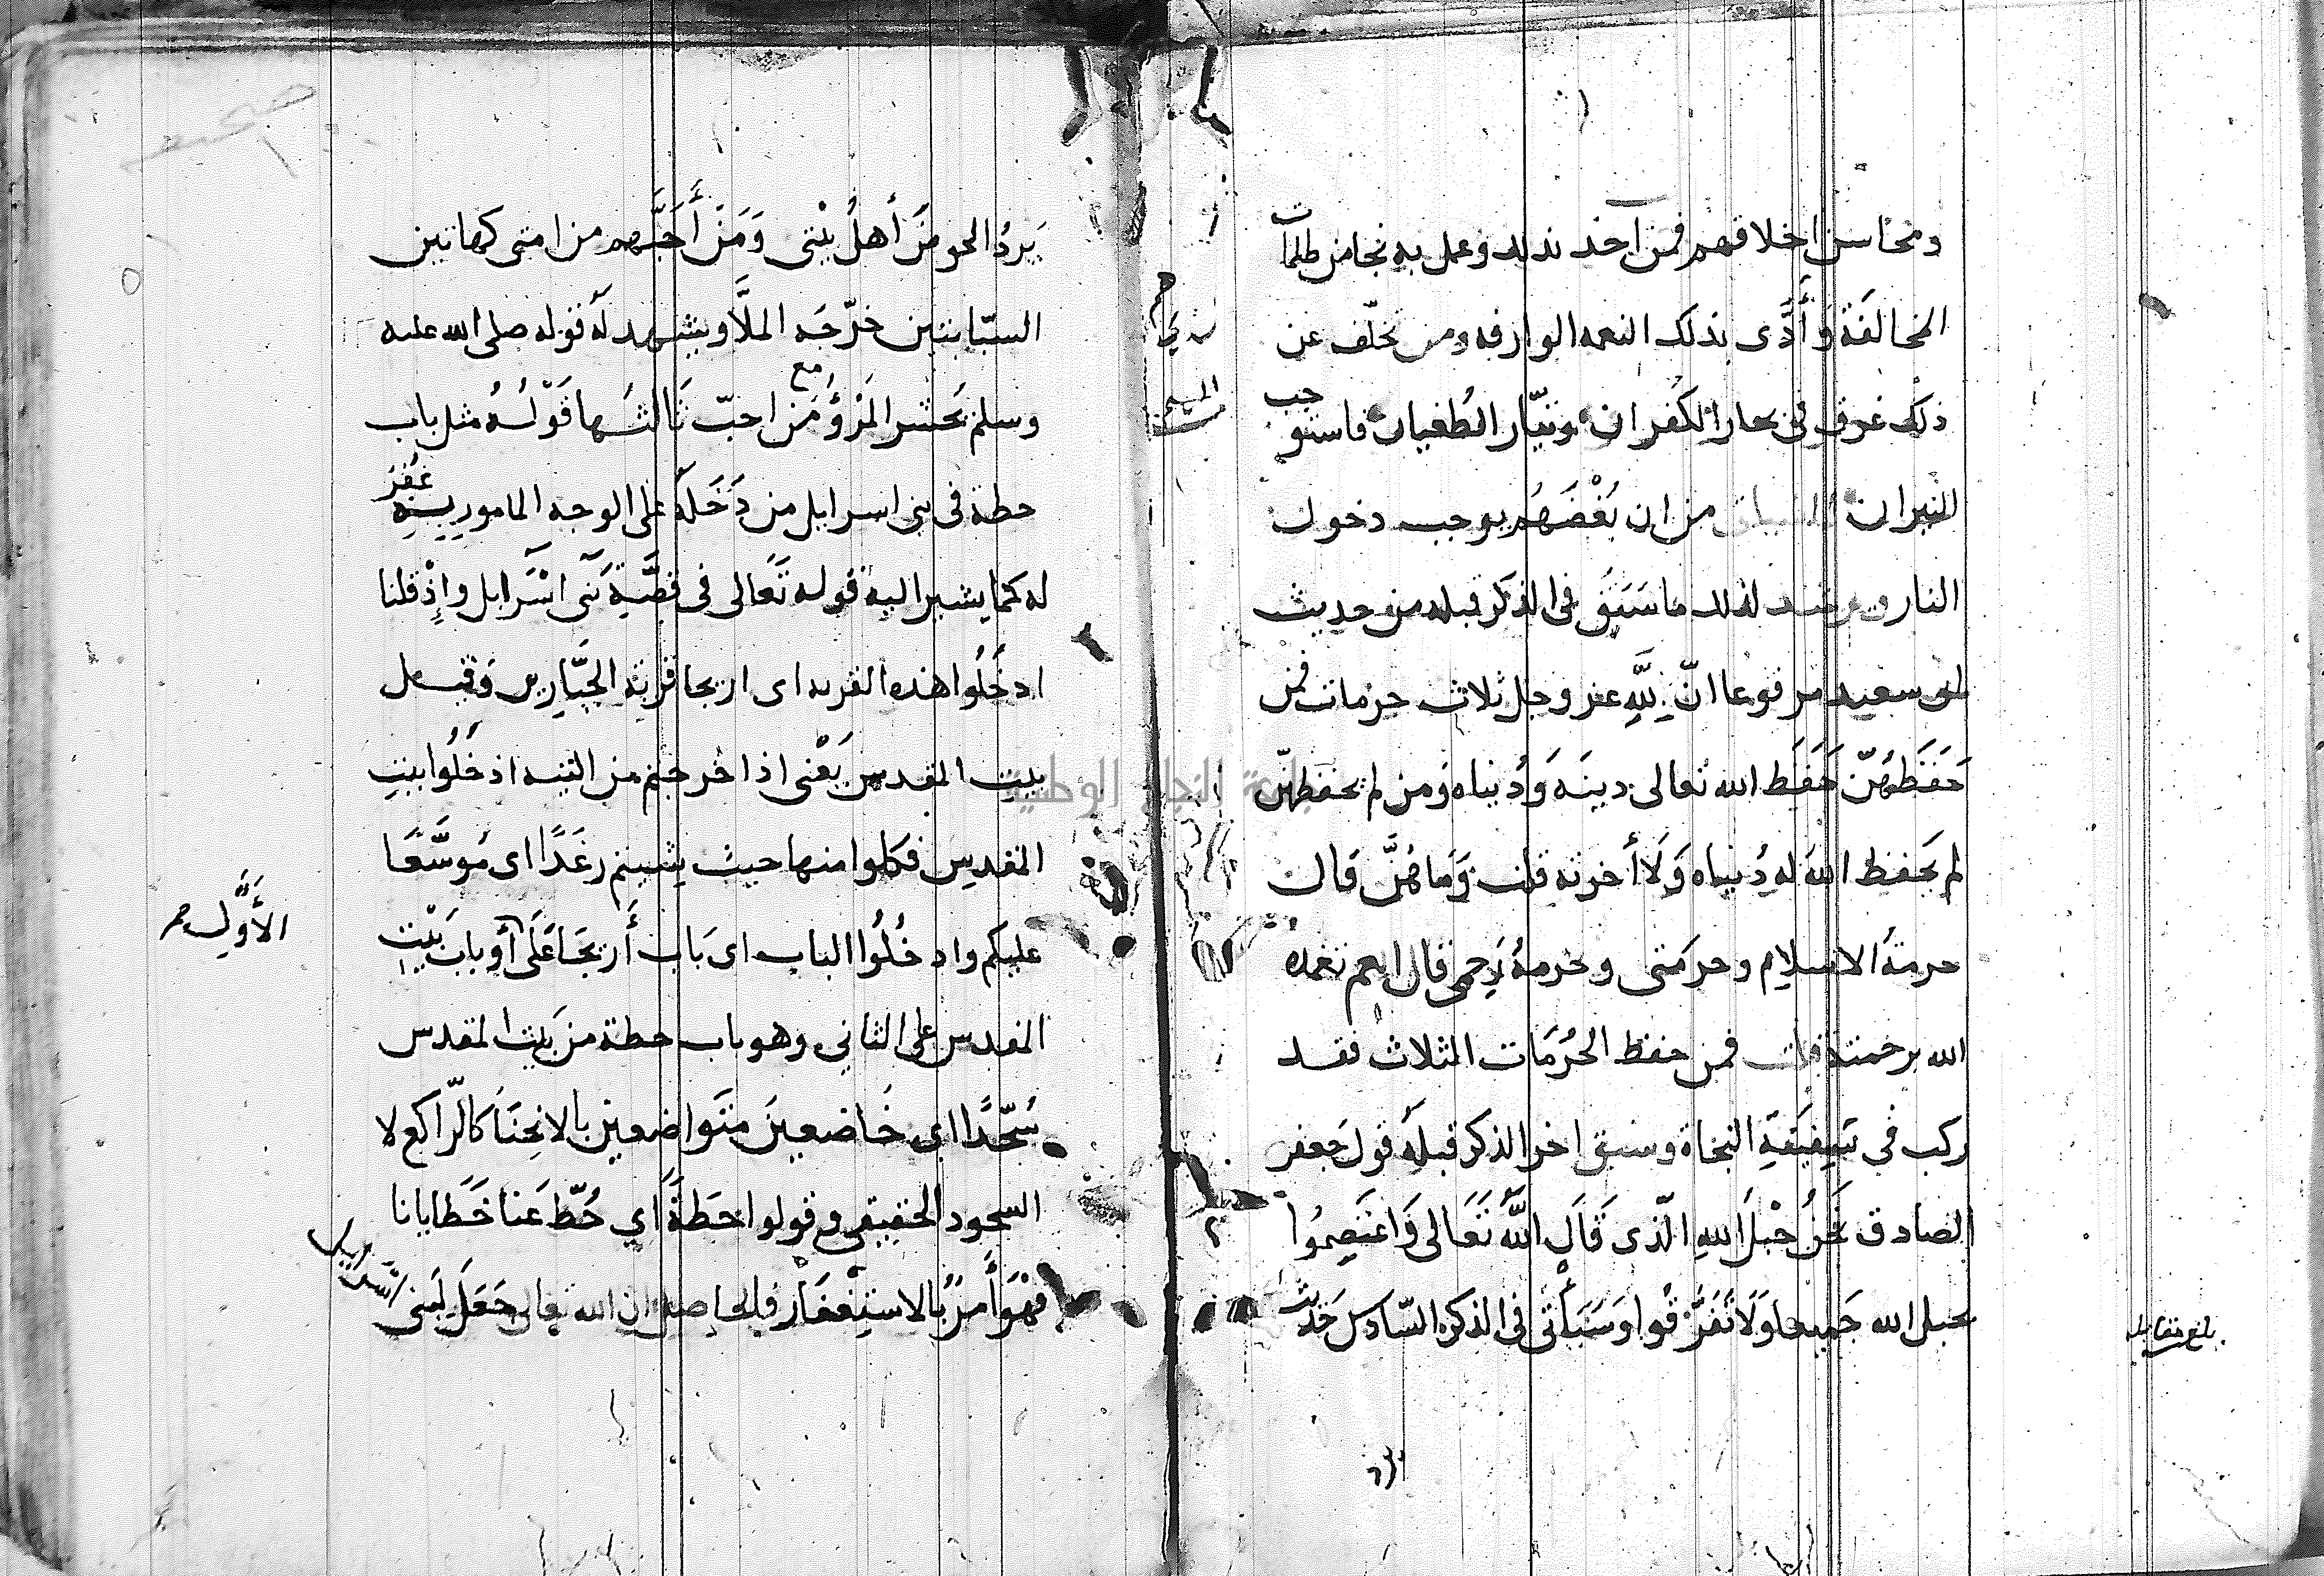 ومحاسن اخلاقهم فمن اخذ بذلك وعمل به نجا من ظلمات
المخالفة وأدى بذلك النعمه الوارفه ومن تخلف عن
ذلك غرق في بحار الكفران وتيار الطغيان فاستوجب
النيران من ان بغضهم يوجب دخول
النار لذلك ما سبق في الذكر قبله من حديث
ابي سعيد مرفوعا ان لله عز وجل ثلاث حرمات فمن
حفظهن حفظ الله تعالى دينه ودنياه ومن لم يحفظهن
لم يحفظ الله له دنياه ولا أخرته قلت وما هن قال
حرمة الاسلام وحرمتي وحرمة رحمي قال ابعم تغمده
الله برحمته قلت فمن حفظ الحرمات الثلاث فقد
ركب في سفينة النجاة وسبق اخر الذكر قبله قول جعفر
الصادق نحن حبل الله الذي قال الله تعالى واعتصموا
بحبل الله جميعا ولا تفرقوا وسيأتي في الذكر السادس حديث
بلغ مقابله
يرد
يرد الحوض أهل بيتي ومن أحبهم من امتي كهاتين
السبابتين خرجه الملا ويشهد له قوله صلى الله عليه
وسلم يحشر المرؤ مع من احب ثالثها قوله مثل باب
حطة في بني اسرايل من دخله على الوجه المامور به غفر
له كما يشير اليه قوله تعالى في قصة بني اسرايل وإذ قلنا
ادخلوا هذه القريه اى اريحا قرية الجبارين وقيل
بيت المقدس يعني اذا خرجتم من التيه ادخلوا بيت
المقدس فكلوا منها حيث شيتم رغدا اى موسعا
عليكم وادخلوا الباب اى باب أريحا على أو باب بيت
الأول صح
المقدس على الثاني وهو باب حطة من بيت المقدس
سجدا اي خاضعين متواضعين بالانحنا كالراكع لا
السجود الحقيقي وقولوا حطة اي حط عنا خطايانا
فهو أمر بالاستغفار فالحاصل ان الله تعالى جعل لبني اسرايل